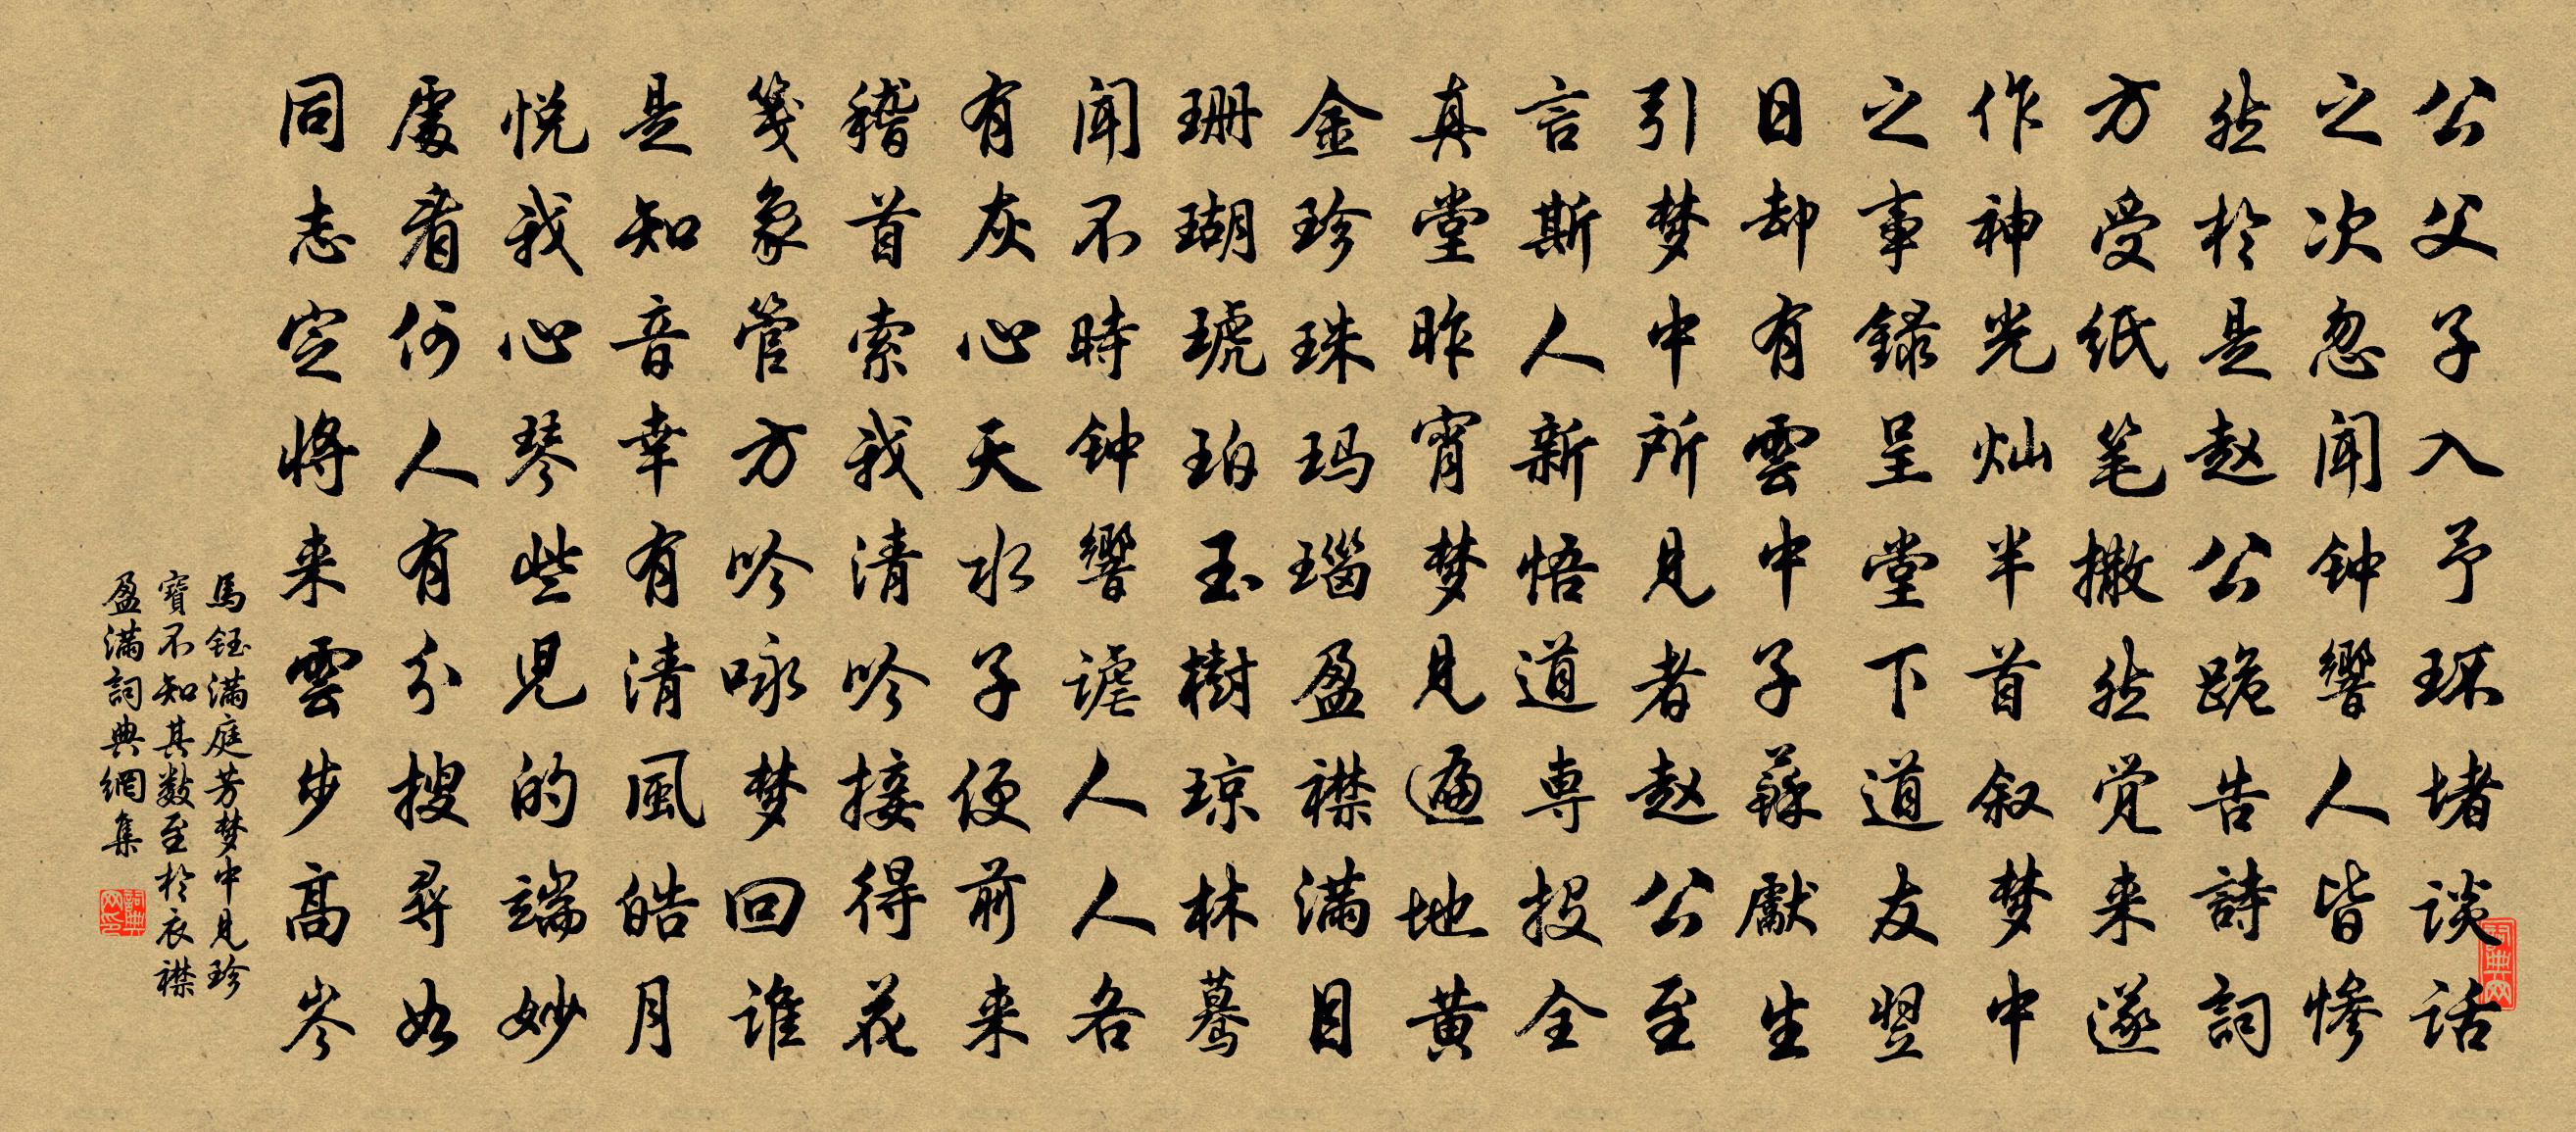 公父子入予环堵谈话
之次忽闻钟響人皆惨
然於是赵公跪告詩詞
方受纸笔撒然觉来遂
作神光灿半首叙梦中
之事録呈堂下道友翌
日却有雲中子蘇獻生
引梦中所见者赵公至
言斯人新悟道専投全
真堂昨宵梦见遍地黄
金珍珠玛瑙盈襟满目
珊瑚琥珀玉樹琼林蓦
闻不時钟響謔人人各
有灰心天水子便前来
稽首索我清吟接得花
箋象管方吟咏梦回谁
是知音幸有清風皓月
悦我心琴些児的端妙
處看何人有分搜尋如
同志定将来雲步高岑
馬鈺满庭芳梦中见珍
寶不知其数至於衣襟
盈满詞典網集